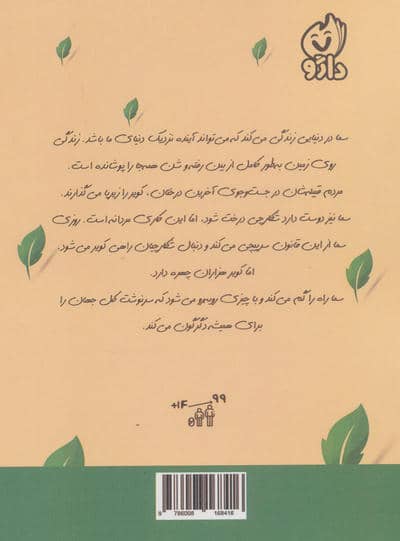 دارکو
سما در دنیایی زندگی می‌کند که می‌تواند آینده نزدیک دنیای ما باشد. زندگی
روی زمین به‌طور کامل از بین رفته و شن همه‌جا را پوشانده است.
مردم قبیله‌شان در جست‌وجوی آخرین درختان، کویر را زیر پا می‌گذارند.
سما نیز دوست دارد شکارچی درخت شود، اما این کاری مردانه است. روزی
سما از این قانون سرپیچی می‌کند و دنبال شکارچیان راهی کویر می‌شود.
اما کویر هزاران چهره دارد.
سما راه را گم می‌کند و با چیزی روبه‌رو می‌شود که سرنوشت کل جهان را
برای همیشه دگرگون می‌کند.
۹۹ +۱۴
9 786008 168416